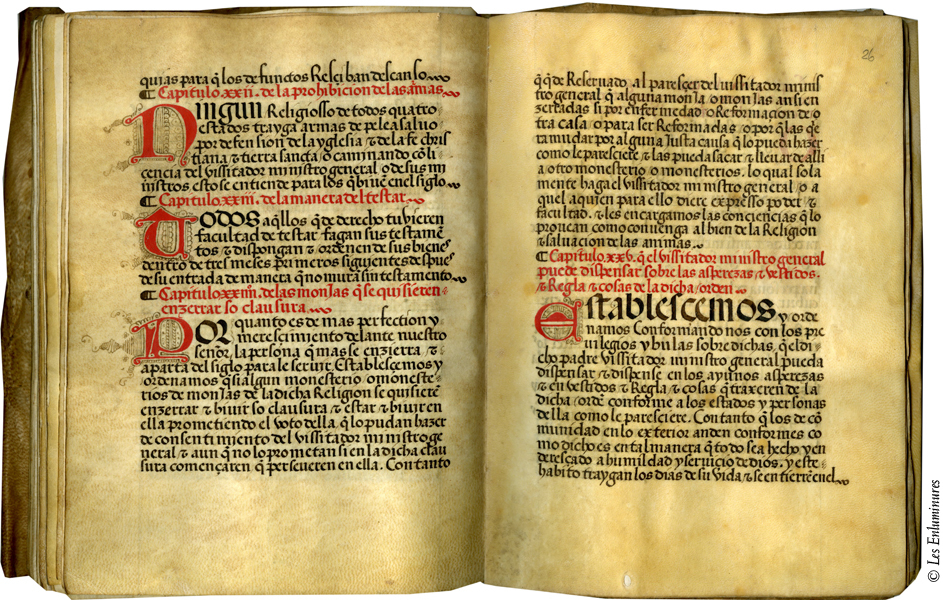 quias para q̃ los defunctos Resçiban descanso
¶ Capitulo. xxii. de la prohibicion de las armas.
Ningun Religiosso de todos quatro
estados trayga armas de pelea saluo
por defension de la yglesia ⁊ de la fe chris
tiana ⁊ tierra sancta o caminando cõ li
cencia del vissitador ministro general o de sus mi
nistros. esto se entiende para los q̃ biuẽ en el siglo
¶ Capitulo. xxiii. de la manera del testar
Todos aq̃llos q̃ de derecho tubieren
facultad de testar fagan sus testamẽ
tos ⁊ dispongan ⁊ ordenen de sus bienes
dentro de tres meses primeros siguientes despues
de su entrada de manera q̃ no muran sin testamento.
¶ Capitulo. xxiiii. de las monjas q̃ se quisieren
enzerrar so clausura
Por quanto es de mas perfection y
meresçimiento delante nuestro
señor. la persona q̃ mas se enzierra ⁊
aparta del siglo para le seruir. Establesçemos y
ordenamos q̃ si algun monesterio o moneste
rios de monjas de la dicha Religion se quisierẽ
enzerrar ⁊ biuir so clausura ⁊ estar ⁊ biuir en
ella prometiendo el voto della. q̃ lo pudan hazer
de consentimiento del vissitador ministro ge
neral ⁊ aun q̃ no lo prometan si en la dicha clau
sura començaren q̃ perseueren en ella. Con tanto
26
q̃ q̃de Reseruado al paresçer del vissitador minis
tro general q̃ alguna monja o monjas ansi en
zerradas si por enfermedad o Reformacion de o
tra casa o para ser Reformadas o por q̃ las q̃e
ra mudar por alguna justa causa q̃ lo pueda hazer
como le paresçiere ⁊ las pueda sacar ⁊ lleuar de alli
a otro monesterio o monesterios. lo qual sola
mente haga el vissitador ministro general o a
quel a quien para ello diere expresso poder ⁊
facultad. ⁊ les encargamos las conciencias q̃ lo
prouean como conuenga al bien de la Religion
⁊ saluacion de las animas.
¶ Capitulo. xxv. q̃ el vissitador ministro general
puede dispensar sobre las asperezas ⁊ vestidos.
⁊ Regla ⁊ cosas de la dicha orden
Establesçemos y orde
namos Conformando nos con los pre
uilegios y bulas sobre dichas. q̃ el di
cho padre vissitador ministro general pueda
dispensar ⁊ dispense en los ayunos asperezas
⁊ en vestidos ⁊ Regla ⁊ cosas q̃ traxeren de la
dicha ordẽ conforme a los estados y personas
della como le paresciere. Con tanto q̃ los de cõ
munidad en lo exterior anden conformes co
mo dicho es en tal manera q̃ todo sea hecho y en
deresçado a humildad y seruicio de dios. y este
habito traygan los dias de su vida ⁊ se entierrẽ en el.
© Les Enluminures